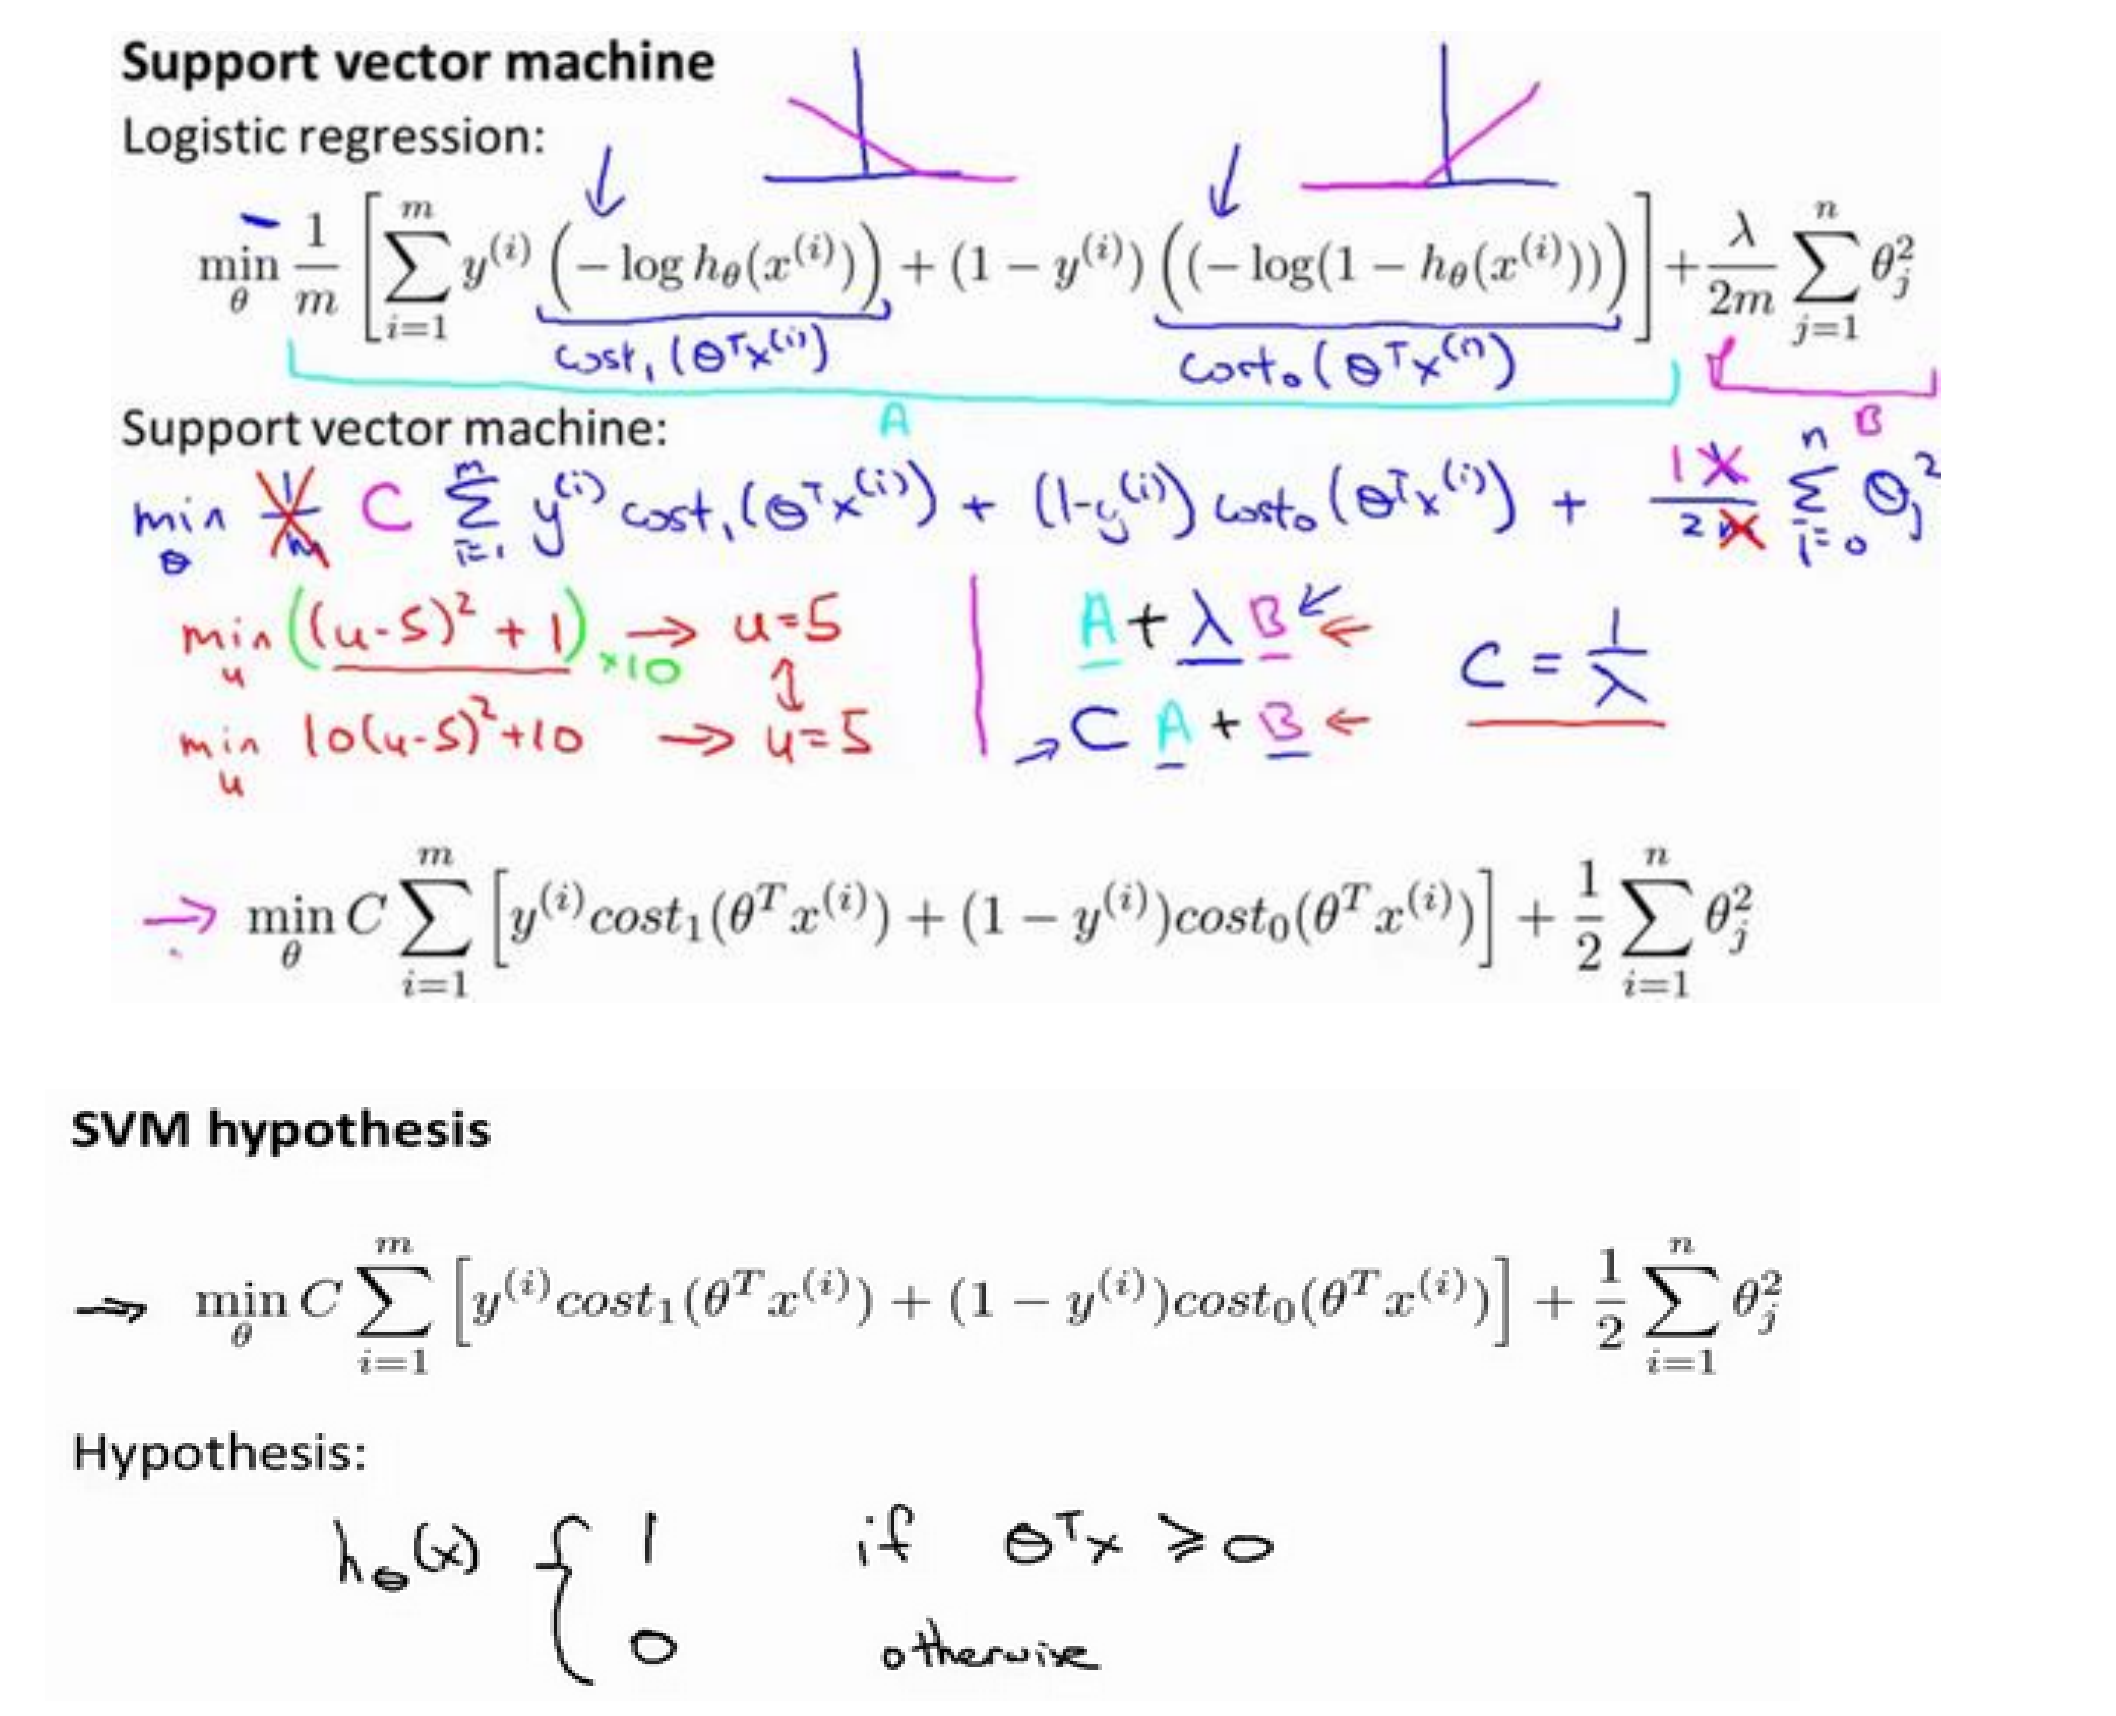 Support vector machine
Logistic regression:
min_θ 1/m [ ∑_{i=1}^{m} y^{(i)} (− log h_θ(x^{(i)})) + (1 − y^{(i)}) ((− log(1 − h_θ(x^{(i)})))) ] + λ/2m ∑_{j=1}^{n} θ_j^2
cost₁(θᵀx^{(i)}) cost₀(θᵀx^{(i)})
A B
Support vector machine:
min_θ 1/m C ∑_{i=1}^{m} y^{(i)} cost₁(θᵀx^{(i)}) + (1-y^{(i)}) cost₀(θᵀx^{(i)}) + 1 λ/2m ∑_{i=0}^{n} θ_j^2
min_u ((u-5)² + 1) ×10 → u=5 A + λ B ← C = 1/λ
↕
min_u 10(u-5)²+10 → u=5 → C A + B ←
→ min_θ C ∑_{i=1}^{m} [ y^{(i)} cost₁(θ^T x^{(i)}) + (1 − y^{(i)}) cost₀(θ^T x^{(i)}) ] + 1/2 ∑_{i=1}^{n} θ_j^2
SVM hypothesis
→ min_θ C ∑_{i=1}^{m} [ y^{(i)} cost₁(θ^T x^{(i)}) + (1 − y^{(i)}) cost₀(θ^T x^{(i)}) ] + 1/2 ∑_{i=1}^{n} θ_j^2
Hypothesis:
h_θ(x) { 1 if θᵀx ⩾ 0
0 otherwise